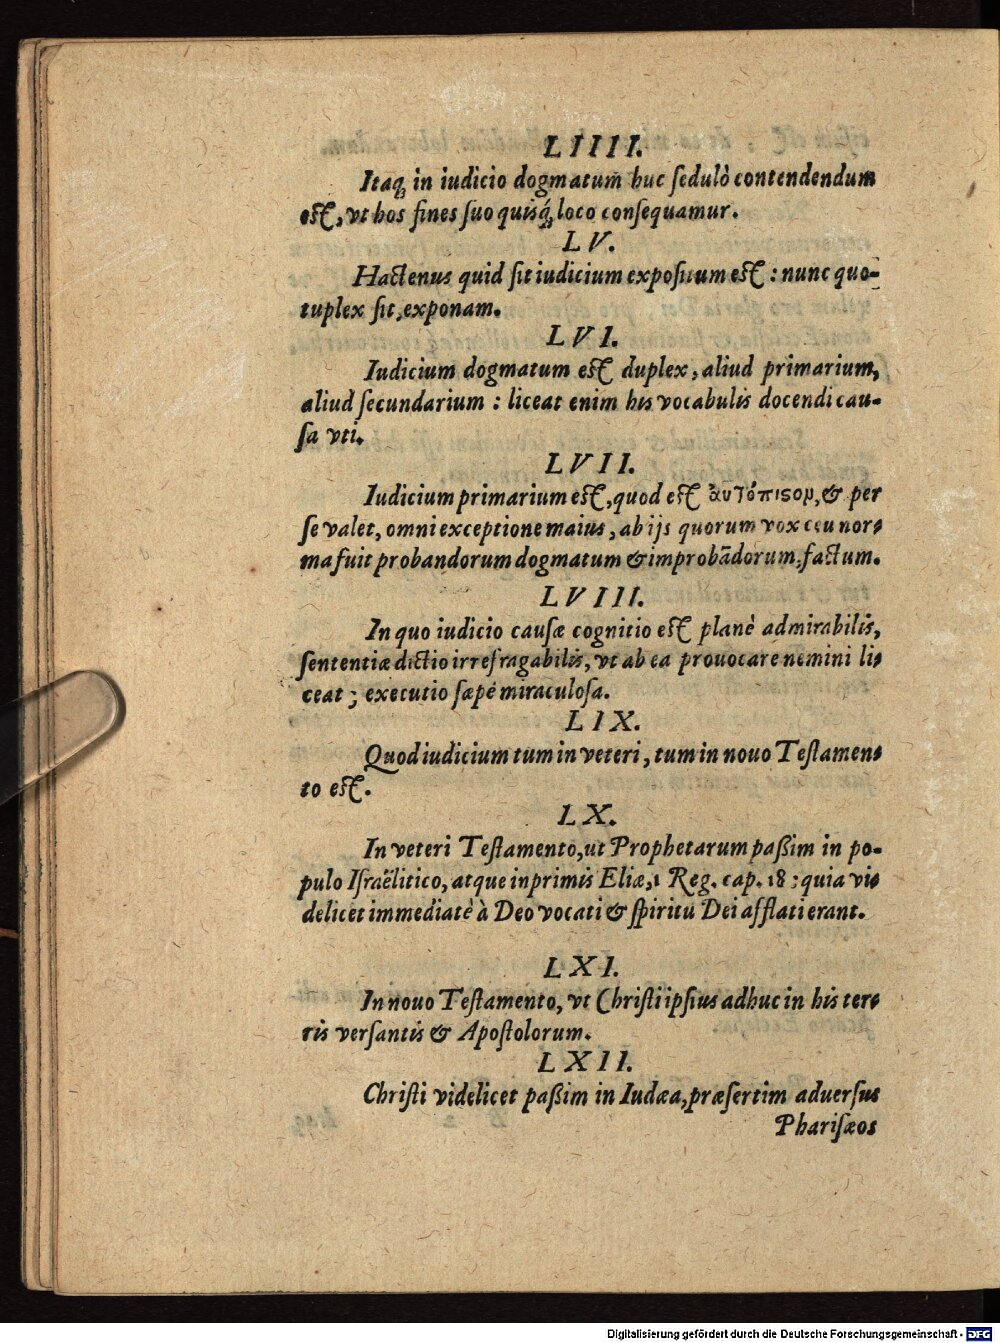 LIIII.
Itaq; in iudicio dogmatum huc ſedulò contendendum
eſt, vt hos fines ſuo quisq́; loco conſequamur.
LV.
Hactenus quid ſit iudicium expoſitum eſt : nunc quo-
tuplex ſit, exponam.
LVI.
Iudicium dogmatum eſt duplex, aliud primarium,
aliud ſecundarium : liceat enim his vocabulis docendi cau-
ſa vti.
LVII.
Iudicium primarium eſt, quod eſt ἀυτόπιϛομ, & per
ſe valet, omni exceptione maius, ab ijs quorum vox ceu nor-
ma fuit probandorum dogmatum & improbādorum, factum.
LVIII.
In quo iudicio cauſæ cognitio eſt planè admirabilis,
ſententiæ dictio irrefragabilis, vt ab ea prouocare nemini li-
ceat ; executio ſæpè miraculoſa.
LIX.
Quod iudicium tum in veteri, tum in nouo Teſtamen-
to eſt.
LX.
In veteri Teſtamento, ut Prophetarum paßim in po-
pulo Iſraëlitico, atque inprimis Eliæ, 1 Reg. cap. 18 : quia vi-
delicet immediatè à Deo vocati & ſpiritu Dei afflati erant.
LXI.
In nouo Teſtamento, vt Chriſti ipſius adhuc in his ter-
ris verſantis & Apoſtolorum.
LXII.
Chriſti videlicet paßim in Iudæa, præſertim aduerſus
Phariſæos
Digitalisierung gefördert durch die Deutsche Forschungsgemeinschaft - DFG